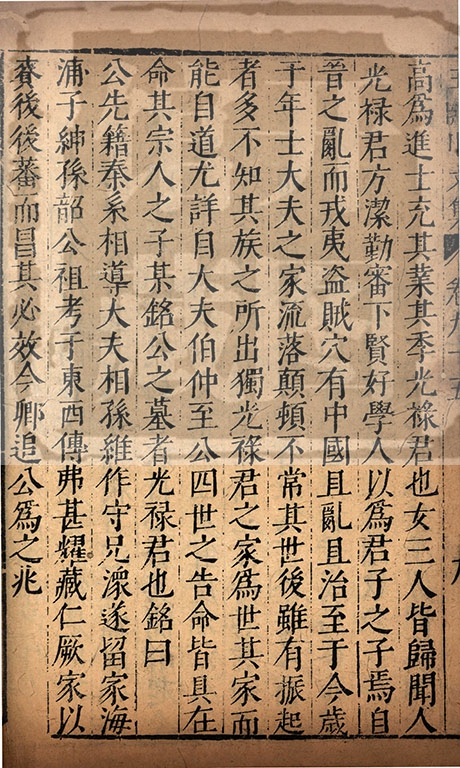 臨川文集 卷九十五 九
高爲進士充其業其季光祿君也女三人皆歸聞人
光祿君方潔勤審下賢好學人以爲君子之子焉自
晉之亂而戎夷盗賊穴有中國且亂且治至于今歲
千年士大夫之家流落顛頓不常其世後雖有振起
者多不知其族之所出獨光祿君之家爲世其家而
能自道尤詳自大夫伯仲至公四世之告命皆具在
命其宗人之子某銘公之墓者光祿君也銘曰
公先籍秦系相導大夫相孫維作守兄濠遂留家海
浦子紳孫韶公祖考于東西傳弗甚耀藏仁厥家以
賚後後蕃而昌其必效今卿追公爲之兆